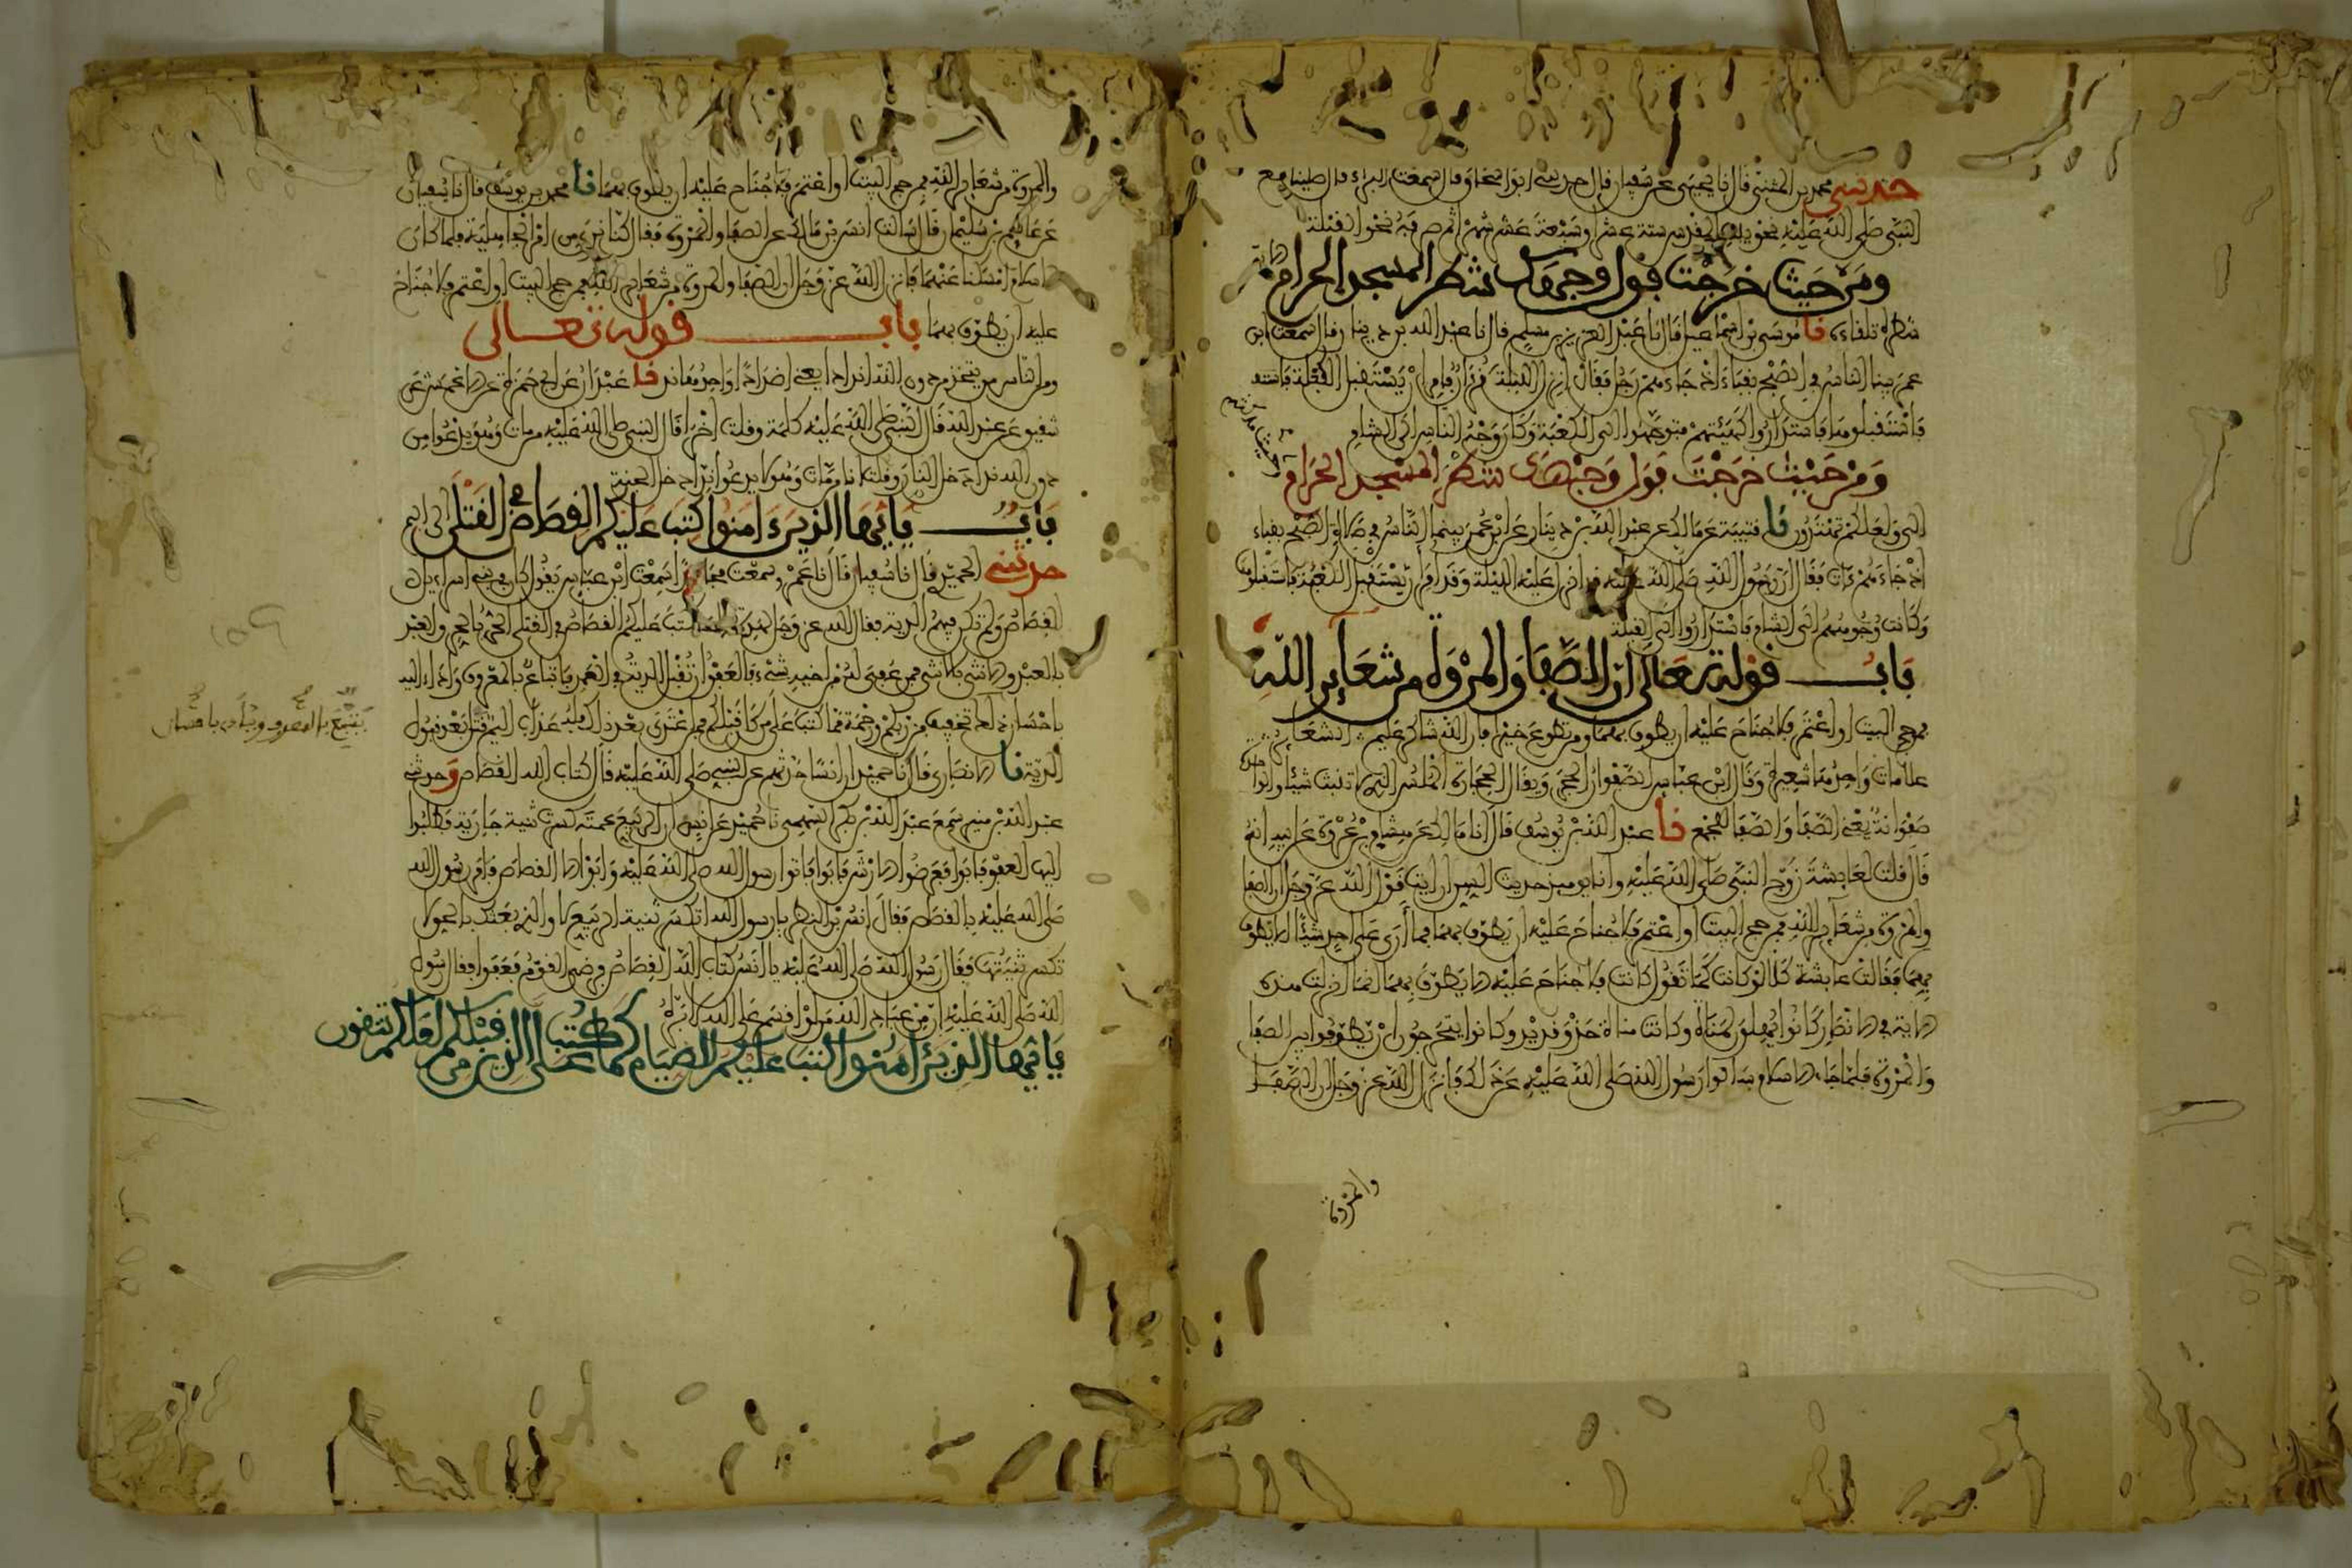 حدثني محمد بن المثنى قال نا يحيى عن سفيان قال حدثني ابو اسحاق قال سمعت البراء قال صلينا مع
النبي صلى الله عليه نحو بيت المقدس ستة عشر او سبعة عشر شهرا ثم صرفه نحو القبلة
ومن حيث خرجت فول وجهك شطر المسجد الحرام
شطره تلقاءه نا موسى بن اسماعيل قال نا عبد العزيز بن مسلم قال نا عبد الله بن دينار قال سمعت ابن
عمر بينا الناس في الصبح بقباء اذ جاءهم رجل فقال انزل الليلة قرآن فامر ان يستقبل الكعبة
فاستقبلوها فاستداروا كهيئتهم فتوجهوا الى الكعبة وكان وجه الناس الى الشام
ومن حيث خرجت فول وجهك شطر المسجد الحرام
الى ولعلكم تهتدون نا قتيبة عن مالك عن عبد الله بن دينار عن ابن عمر بينما الناس في صلاة الصبح بقباء
اذ جاءهم ءات فقال ان رسول الله صلى الله عليه قد انزل عليه الليلة وقد امر ان يستقبل الكعبة فاستقبلوها
وكانت وجوههم الى الشام فاستداروا الى القبلة
باب قوله تعالى ان الصفا والمروة من شعاير الله
فمن حج البيت او اعتمر فلا جناح عليه ان يطوف بهما ومن تطوع خيرا فان الله شاكر عليم شعاير
علامات واحدها شعيرة وقال ابن عباس الصفوان الحجر ويقال الحجارة الملس التي لا تنبت شيئا والواحدة
صفوانة يعني الصفا والصفا للجمع نا عبد الله بن يوسف قال انا مالك عن هشام بن عروة عن ابيه انه
قال قلت لعايشة زوج النبي صلى الله عليه وانا يوميذ حديث السن ارايت قول الله عز وجل ان الصفا
والمروة من شعاير الله فمن حج البيت او اعتمر فلا جناح عليه ان يطوف بهما فما أرى على احد شيئا الا يطوف
بهما فقالت عايشة كلا لو كانت كما تقول كانت فلا جناح عليه الا يطوف بهما انما انزلت هذه
الاية في الانصار كانوا يهلون لمناة وكانت مناة حذو قديد وكانوا يتحرجون ان يطوفوا بين الصفا
والمروة فلما جاء الاسلام سالوا رسول الله صلى الله عليه عن ذلك فانزل الله عز وجل ان الصفا
والمروة
والمروة من شعاير الله فمن حج البيت او اعتمر فلا جناح عليه ان يطوف بهما نا محمد بن يوسف قال نا سفيان
عن عاصم بن سليمان قال سالت انس بن مالك عن الصفا والمروة فقال كنا نرى من امر الجاهلية فلما كان
الاسلام امسكنا عنهما فانزل الله عز وجل ان الصفا والمروة من شعاير الله فمن حج البيت او اعتمر فلا جناح
عليه ان يطوف بهما باب قوله تعالى
ومن الناس من يتخذ من دون الله اندادا يعني اضدادا واحدها ند نا عبدان عن ابي حمزة عن الاعمش عن
شقيق عن عبد الله قال النبي صلى الله عليه كلمة وقلت اخرى قال النبي صلى الله عليه من مات وهو يدعوا من
دون الله ندا دخل النار وقلت انا من مات وهو لا يدعوا ندا دخل الجنة
باب يايها الذين ءامنوا كتب عليكم القصاص في القتلى الى اليم
حدثني الحميدي قال نا سفيان قال نا عمرو سمعت مجاهدا سمعت ابن عباس يقول كان في بني اسراءيل
القصاص ولم تكن فيهم الدية فقال الله عز وجل لهذه الامة كتب عليكم القصاص في القتلى الحر بالحر والعبد
بالعبد والانثى بالانثى فمن عفي له من اخيه شيء فالعفو ان تقبل الدية في العمد فاتباع بالمعروف واداء اليه
يتبع بالمعروف ويؤدي باحسان
باحسان ذلك تخفيف من ربكم ورحمة مما كتب على من كان قبلكم فمن اعتدى بعد ذلك فله عذاب اليم قتل بعد قبول
الدية نا الانصاري قال نا حميد ان انسا حدثهم عن النبي صلى الله عليه قال كتاب الله القصاص وحدثني
عبد الله بن منير سمع عبد الله بن بكر السهمي نا حميد عن انس ان الربيع عمته كسرت ثنية جارية فطلبوا
اليها العفو فابوا فعرضوا الارش فابوا فاتوا رسول الله صلى الله عليه وابوا الا القصاص فامر رسول الله
صلى الله عليه بالقصاص فقال انس بن النضر يا رسول الله اتكسر ثنية الربيع لا والذي بعثك بالحق لا
تكسر ثنيتها فقال رسول الله صلى الله عليه يا انس كتاب الله القصاص فرضي القوم فعفوا فقال رسول
الله صلى الله عليه ان من عباد الله من لو اقسم على الله لأبره
يايها الذين ءامنوا كتب عليكم الصيام كما كتب على الذين من قبلكم لعلكم تتقون